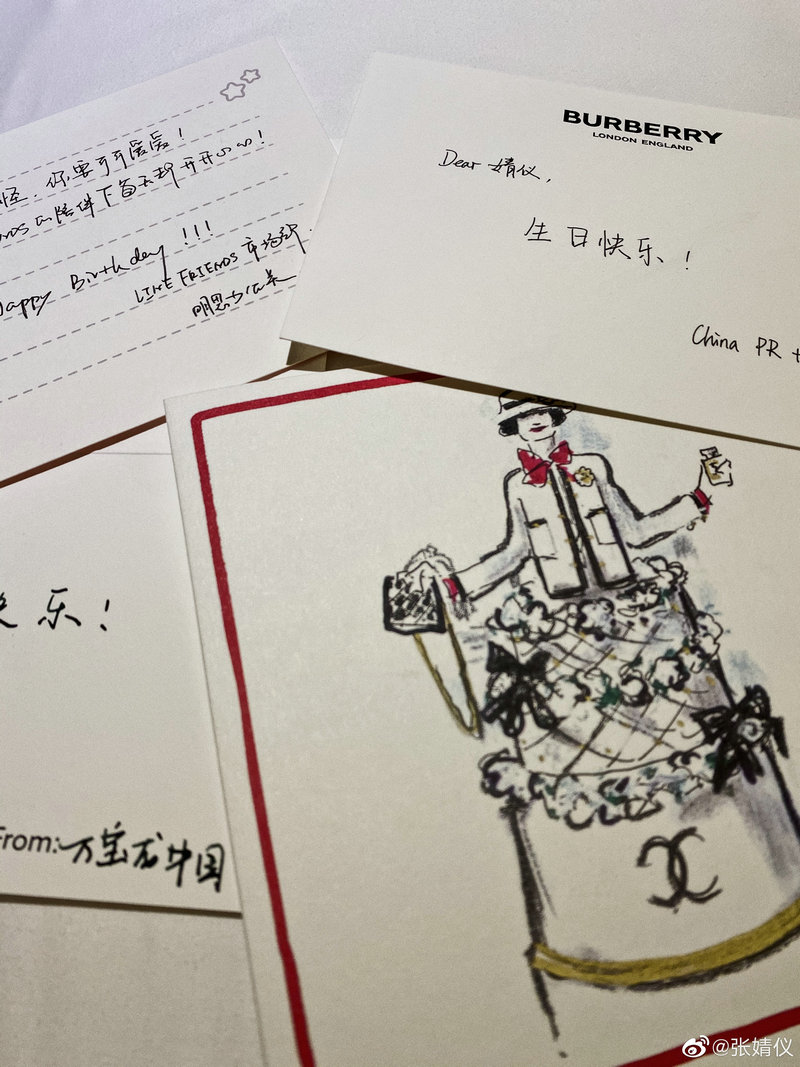 怪、你要可可爱爱!
陪伴下每天都开开心心!
Happy Birthday!!!
LINE FRIENDS 市场部
BURBERRY
LONDON ENGLAND
Dear 婧仪,
生日快乐!
China PR
快乐!
From: 万宝龙中国
@张婧仪